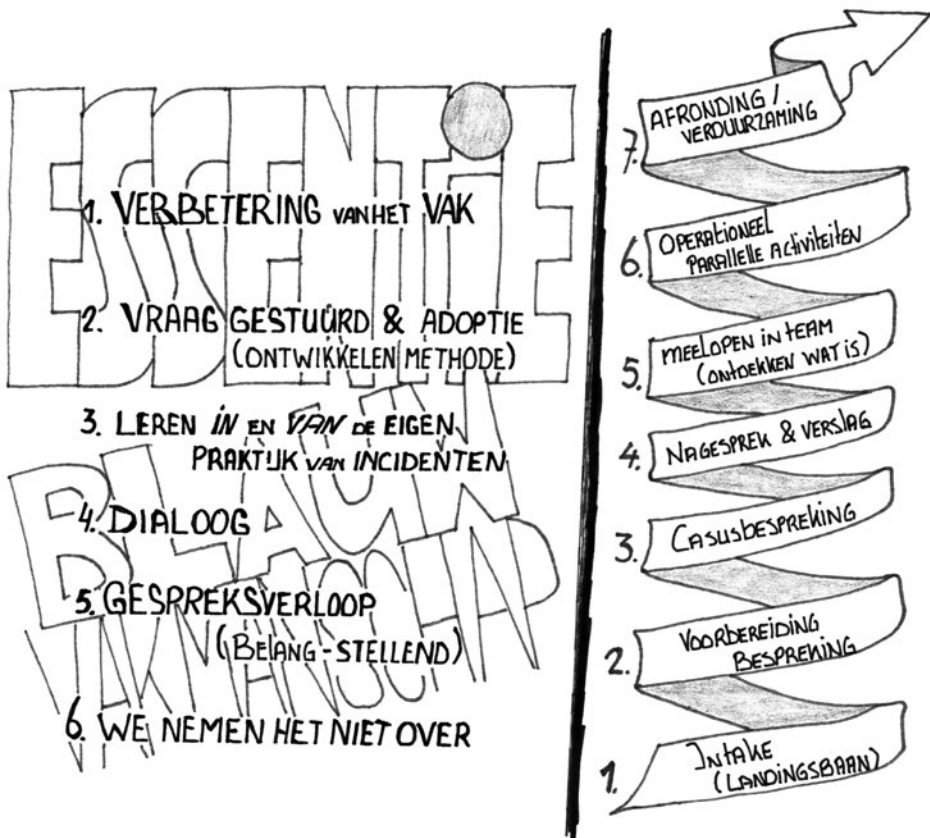 ESSENTiE
1. VERBETERING VAN HET VAK
2. VRAAG GESTUURD & ADOPTIE
(ONTWIKKELEN METHODE)
3. LEREN IN EN VAN DE EIGEN
PRAKTIJK VAN INCIDENTEN
BLAUW
4. DIALOOG
5. GESPREKSVERLOOP
(BELANG-STELLEND)
VAKMANSCHAP
6. WE NEMEN HET NIET OVER
7. AFRONDING /
VERDUURZAMING
6. OPERATIONEEL
PARALLELLE ACTIVITEITEN
5. MEELOPEN IN TEAM
(ONTDEKKEN WAT IS)
4. NAGESPREK & VERSLAG
3. CASUSBESPREKING
2. VOORBEREIDING
BESPREKING
1. INTAKE
(LANDINGSBAAN)